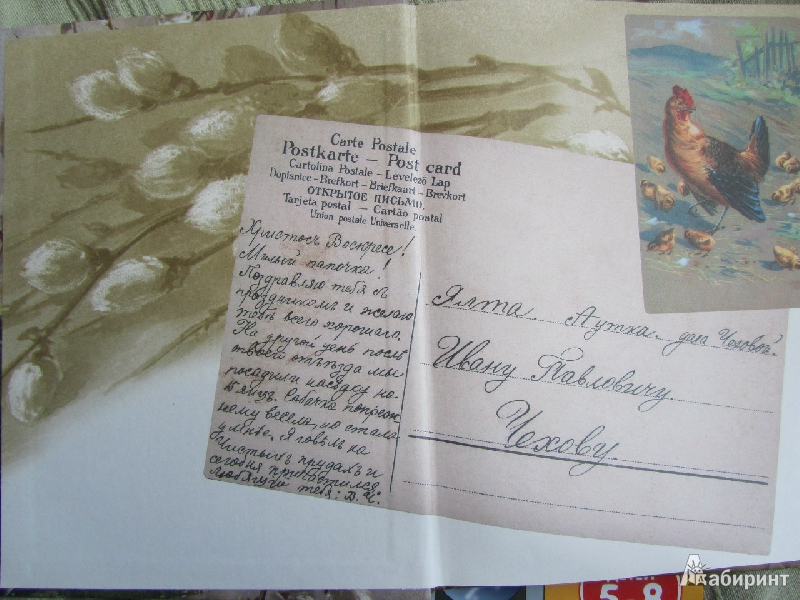 Carte Postale
Postkarte – Post card
Cartolina Postale – Levelező Lap
Dopisnice – Brefkort – Briefkaart – Brevkort
ОТКРЫТОЕ ПИСЬМО.
Tarjeta postal – Cartão postal
Union postale Universelle.
Христосъ Воскресе!
Милый папочка!
Поздравляю тебя съ
праздникомъ и желаю
тебѣ всего хорошаго.
На другой день послѣ
твоего отъѣзда мы
посадили насѣдку на
яицъ. Собачка попреж-
нему весела, но стала
умнѣе. Я говѣлъ на
Чистыхъ прудахъ и
сегодня пріобщился.
Любящій тебя: В. Ч.
Ялта. Аутка. дача Чеховой.
Ивану Павловичу
Чехову.
Лабиринт
5 8